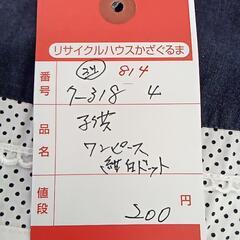 リサイクルハウスかざぐるま
814
番号 ク-318 4
品名 子供
ワンピース
紺白ドット
値段 200円